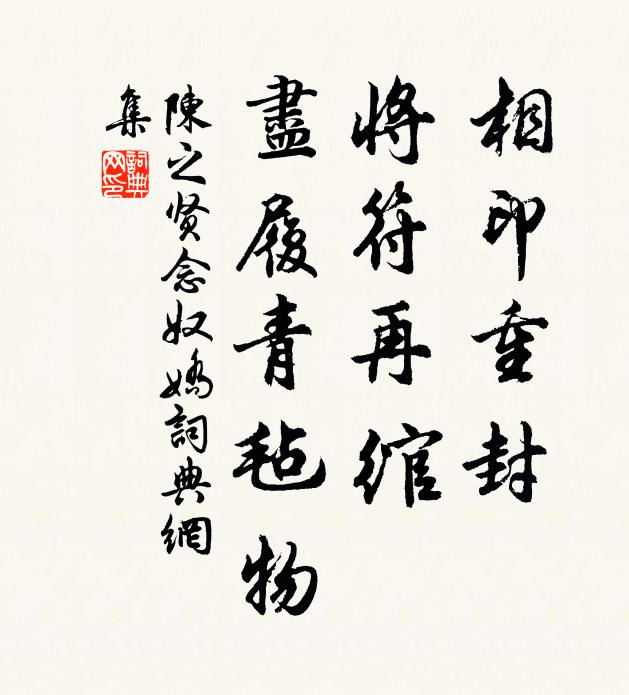 相印重封
將符再綰
盡履青毡物
陳之贤念奴嬌詞典網
集
詞典网印